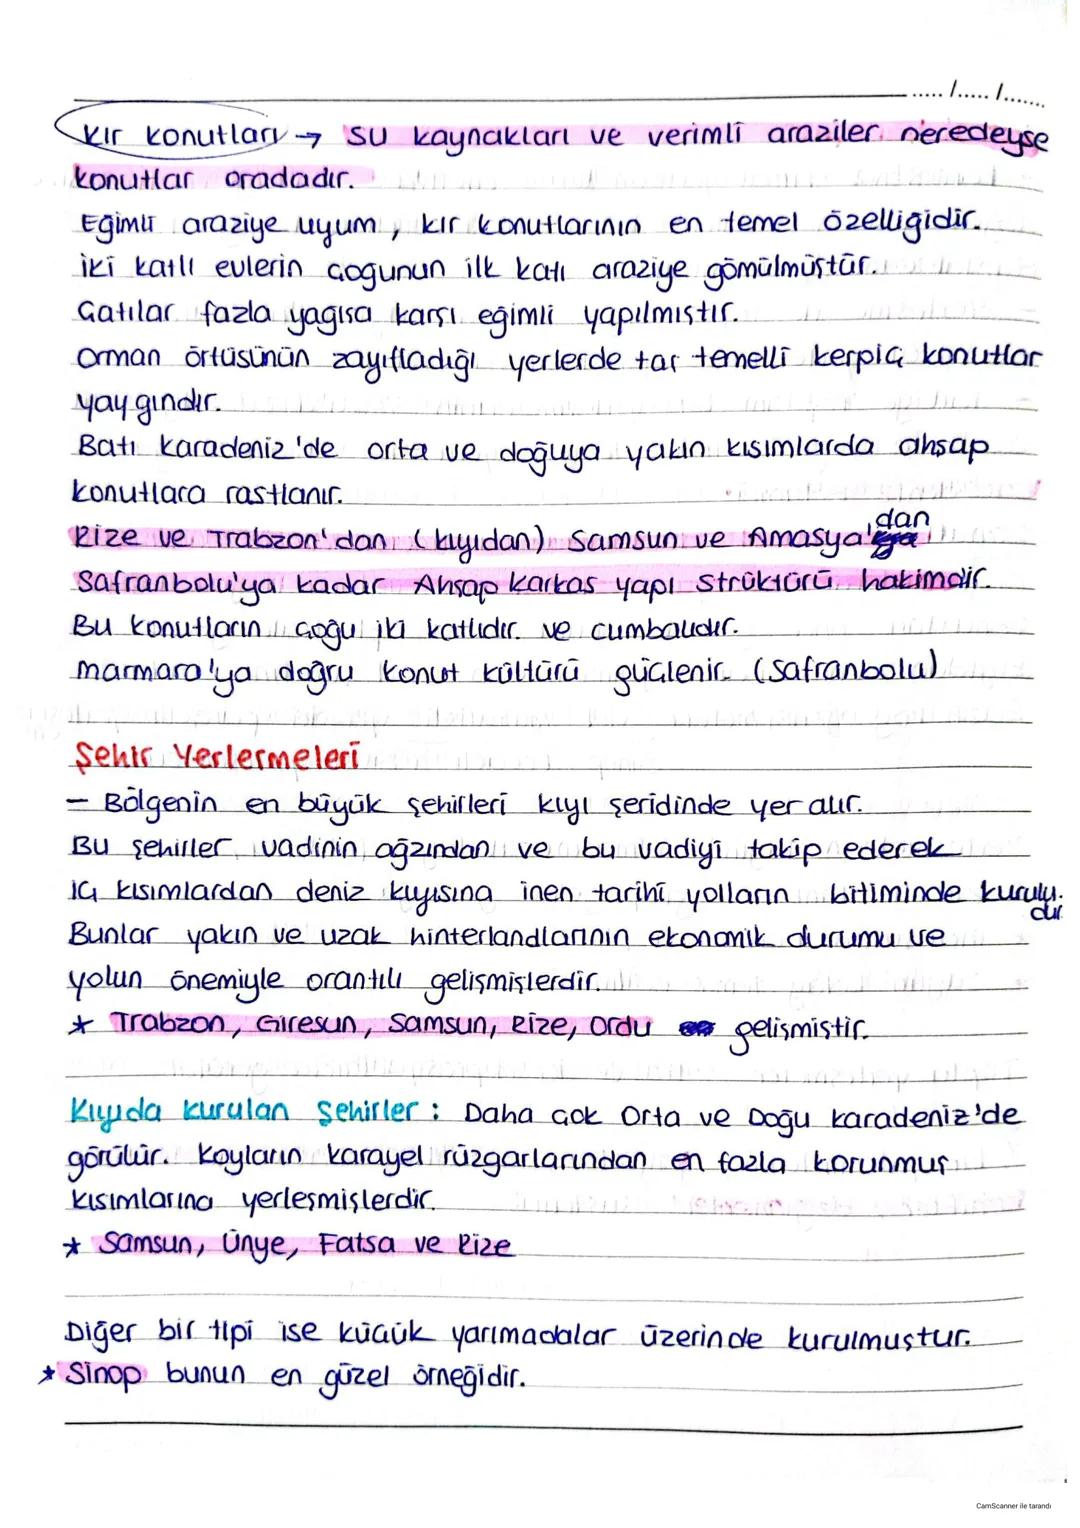 ..... /..... /.......
Kır konutları → su kaynakları ve verimli araziler neredeyse
konutlar oradadır.
Eğimli araziye uyum, kır konutlarının en temel özelliğidir.
İki katlı evlerin çoğunun ilk katı araziye gömülmüştür.
Çatılar fazla yağışa karşı eğimli yapılmıştır.
Orman örtüsünün zayıfladığı yerlerde taş temelli kerpiç konutlar
yaygındır.
Batı Karadeniz'de orta ve doğuya yakın kısımlarda ahşap
konutlara rastlanır.
Rize ve Trabzon'dan (kıyıdan) Samsun ve Amasya'dan
Safranbolu'ya kadar Ahşap karkas yapı strüktürü hakimdir.
Bu konutların çoğu iki katlıdır. ve cumbalıdır.
Marmara'ya doğru konut kültürü güçlenir. (Safranbolu)
Şehir Yerleşmeleri
- Bölgenin en büyük şehirleri kıyı şeridinde yer alır.
Bu şehirler vadinin ağzından ve bu vadiyi takip ederek
iç kısımlardan deniz kıyısına inen tarihi yolların bitiminde kurulu.
dur
Bunlar yakın ve uzak hinterlandlarının ekonomik durumu ve
yolun önemiyle orantılı gelişmişlerdir.
* Trabzon, Giresun, Samsun, Rize, Ordu gelişmiştir.
Kıyıda kurulan şehirler : Daha çok Orta ve Doğu Karadeniz'de
görülür. Koyların karayel rüzgarlarından en fazla korunmuş
kısımlarına yerleşmişlerdir.
* Samsun, Ünye, Fatsa ve Rize
Diğer bir tipi ise küçük yarımadalar üzerinde kurulmuştur.
* Sinop bunun en güzel örneğidir.
CamScanner ile tarandı